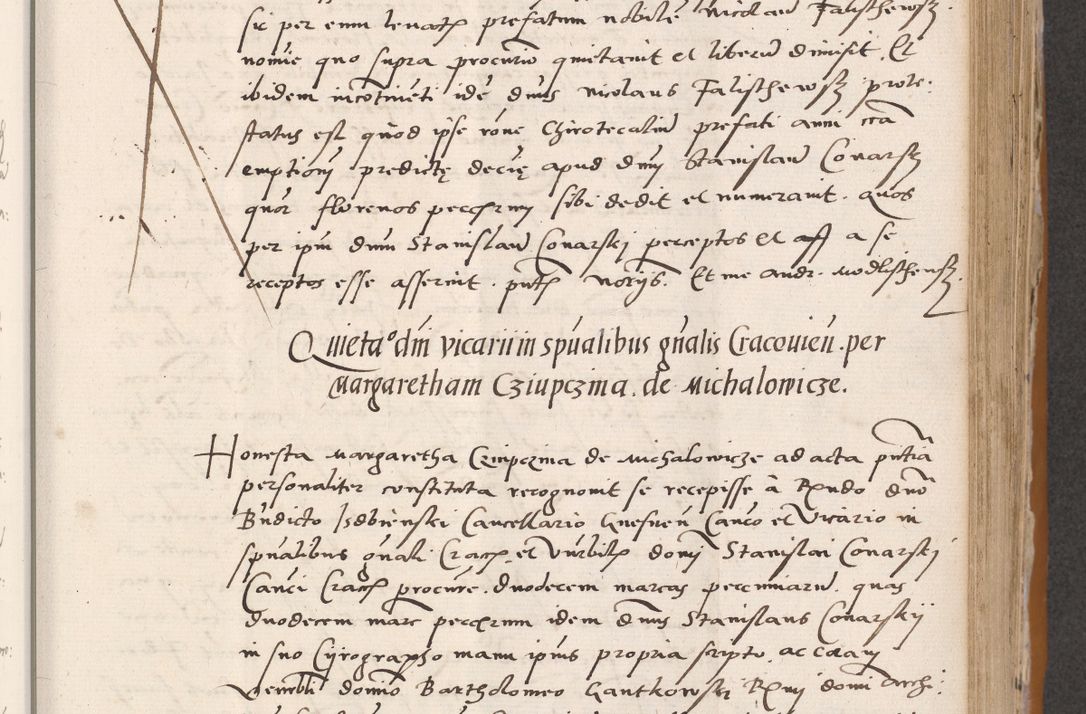 sic per eum levatis prefatum nobile Nicolau Falischewsz
nomie quo supra procurio quietavit et liberu dimisit. Et
ibidem incotineti ide dnus Nicolaus Falischewsz prote:
status est quod ipse rone Chirotecaliu prefati anni cra
emptionis predicte decie apud dnm Stanislau Conarsz
quor florenos peccxrum sibi dedit et numeravit. quos
per ipm dnm Stanislau Conarskj perceptos et a se
receptos esse asseruit. pntt notrijs. Et me Andr. Modlischewsz
Quieta° dni vicarii in spualibus gnalis Cracovien. per
Margaretham Cziupczina. de Michalowicze.
Honesta Margaretha Cziupczina de Michalowicze ad acta pntia
personaliter constituta recognovit se recepisse à Rndo dno
Bndicto Isdbienski Cancellario Gnesnen Canco et Vicario in
spualibus gnali Crac et Vnrbilis domi Stanislai Conarskj
Canci Crac procure. duodecem marcas peccuniaru. quas
duodecem marc peccxrum idem dnus Stanislaus Conarskij
in suo Cyrographo manu ipius propria scripto. ac coram
Venerbli domio Bartholomeo Gantkowskj Rmi domi Archi: